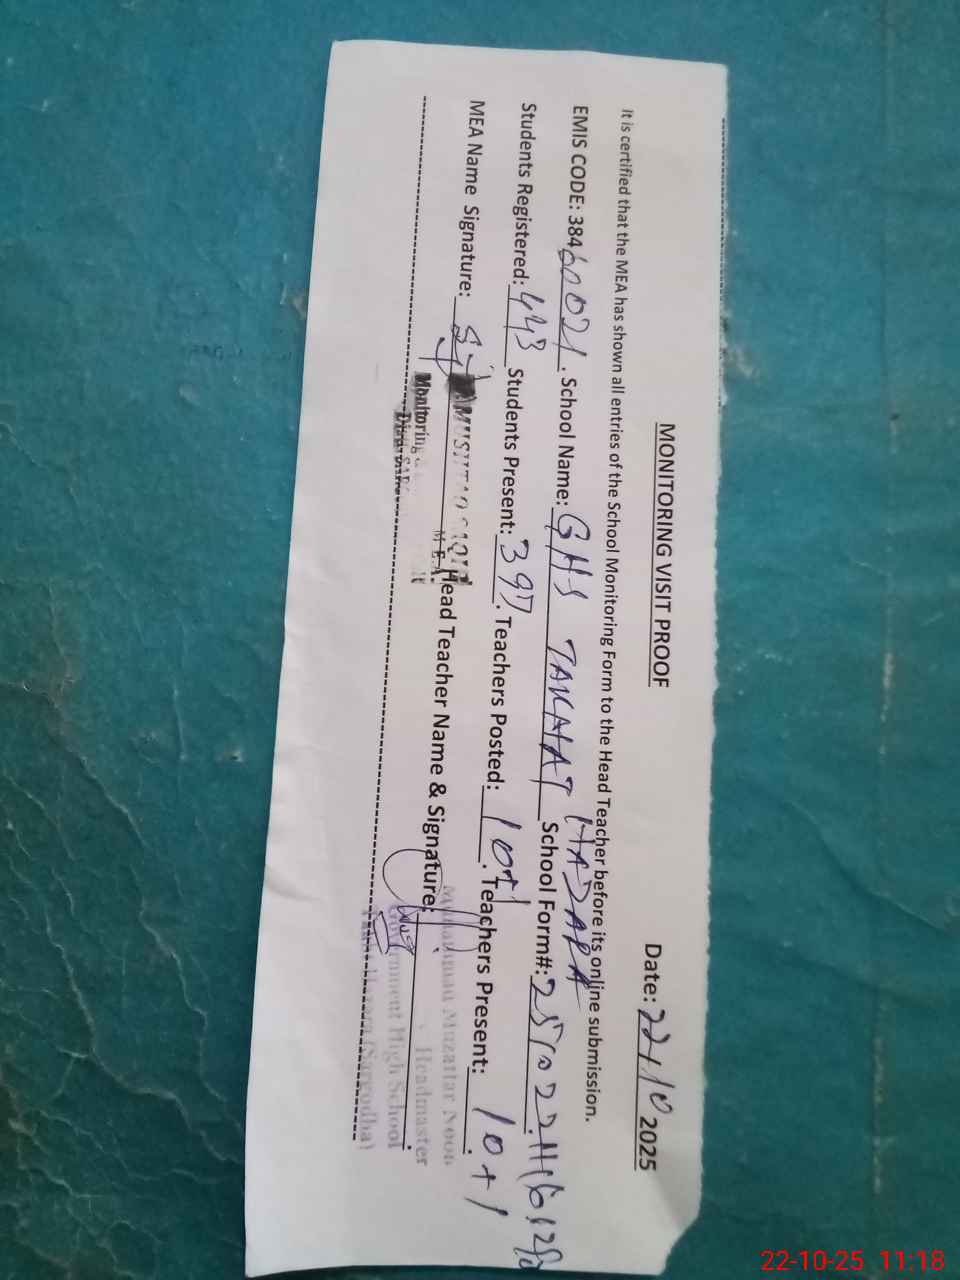 MONITORING VISIT PROOF
Date: 22/10 2025
It is certified that the MEA has shown all entries of the School Monitoring Form to the Head Teacher before its online submission.
EMIS CODE: 38460021. School Name: GHS TAKHAT HADARA School Form#:
Students Registered: 443 Students Present: 397. Teachers Posted: 10+1. Teachers Present: 10+1.
MEA Name Signature: Head Teacher Name & Signature:
MUSHTAQ SAQIB
M.E.A.
Monitoring
Muhammad Muzaffar Noon
Headmaster
Government High School
Hazara (Sargodha)
22-10-25 11:18